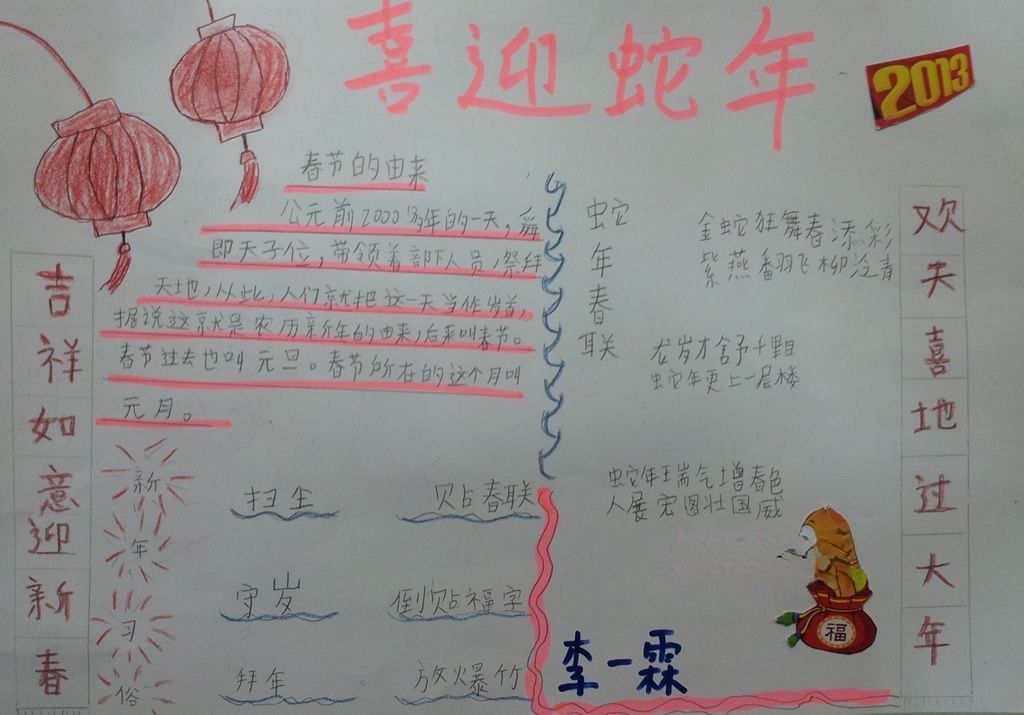 喜迎蛇年
2013
吉祥如意迎新春
欢天喜地过大年
春节的由来
公元前2000多年的一天，舜
即天子位，带领着部下人员，祭拜
天地，从此，人们就把这一天当作岁首，
据说这就是农历新年的由来，后来叫春节。
春节过去也叫元旦。春节所在的这个月叫
元月。
新年习俗
扫生
贴春联
守岁
倒贴福字
拜年
放爆竹
蛇年春联
金蛇狂舞春添彩
紫燕翻飞柳泛青
龙岁才舒千里目
蛇年更上一层楼
蛇年瑞气增春色
人展宏图壮国威
福
李一霖